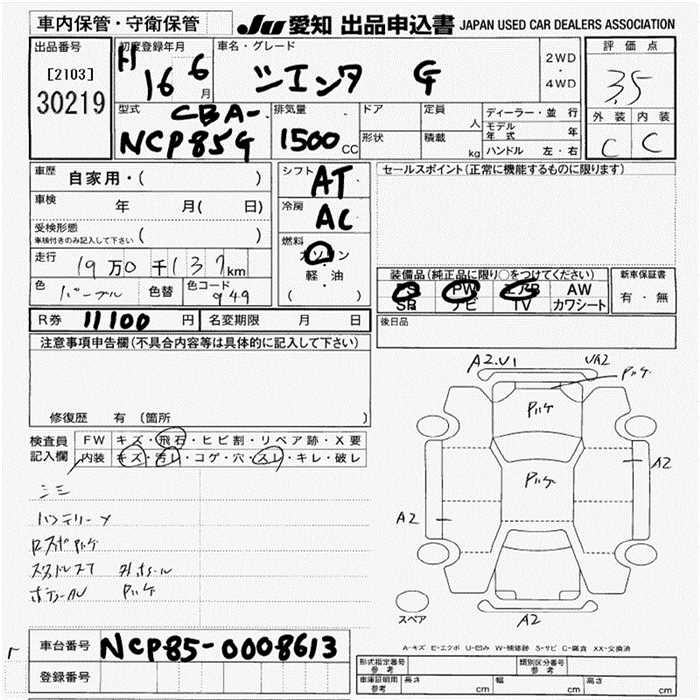 車内保管・守衛保管
JU 愛知 出品申込書 JAPAN USED CAR DEALERS ASSOCIATION
出品番号
[2103]
30219
初度登録年月
H 16 6月
車名・グレード
シエンタ G
2WD
・
4WD
評価点
3.5
外装 内装
C C
型式
CBA-
NCP85G
排気量
1500cc
ドア
形状
定員
人
積載
kg
ディーラー・並行
モデル年式 年
ハンドル 左・右
車歴
自家用・( )
車検
年 月( 日)
受検形態
車検付きのみ記入して下さい ( )
走行
19万0千137km
色
パープル
色替
色コード
949
シフト
AT
冷房
AC
燃料
ガソリン
・
軽油
( )
セールスポイント(正常に機能するものに限ります)
装備品(純正品に限り○をつけてください)
PS PW エアB AW
SR ナビ TV カワシート
新車保証書
有・無
後日品
R券 11100 円
名変期限 月 日
注意事項申告欄(不具合内容等は具体的に記入して下さい)
修復歴 有 (箇所 )
検査員
記入欄
FW キズ・飛石・ヒビ割・リペア跡・X要
内装 キズ・汚レ・コゲ・穴・スレ・キレ・破レ
シミ
A2.U1
UA2
Pハゲ
Pハゲ
Pハゲ
A2
A2
A2
スペア
A-キズ E-エクボ U-凹み W-補修跡 S-サビ C-腐食 XX-交換済
車台番号 NCP85-0008613
登録番号
形式指定番号
参考
類別区分番号
参考
車庫証明用
参考
高さ cm
幅 cm
高さ cm